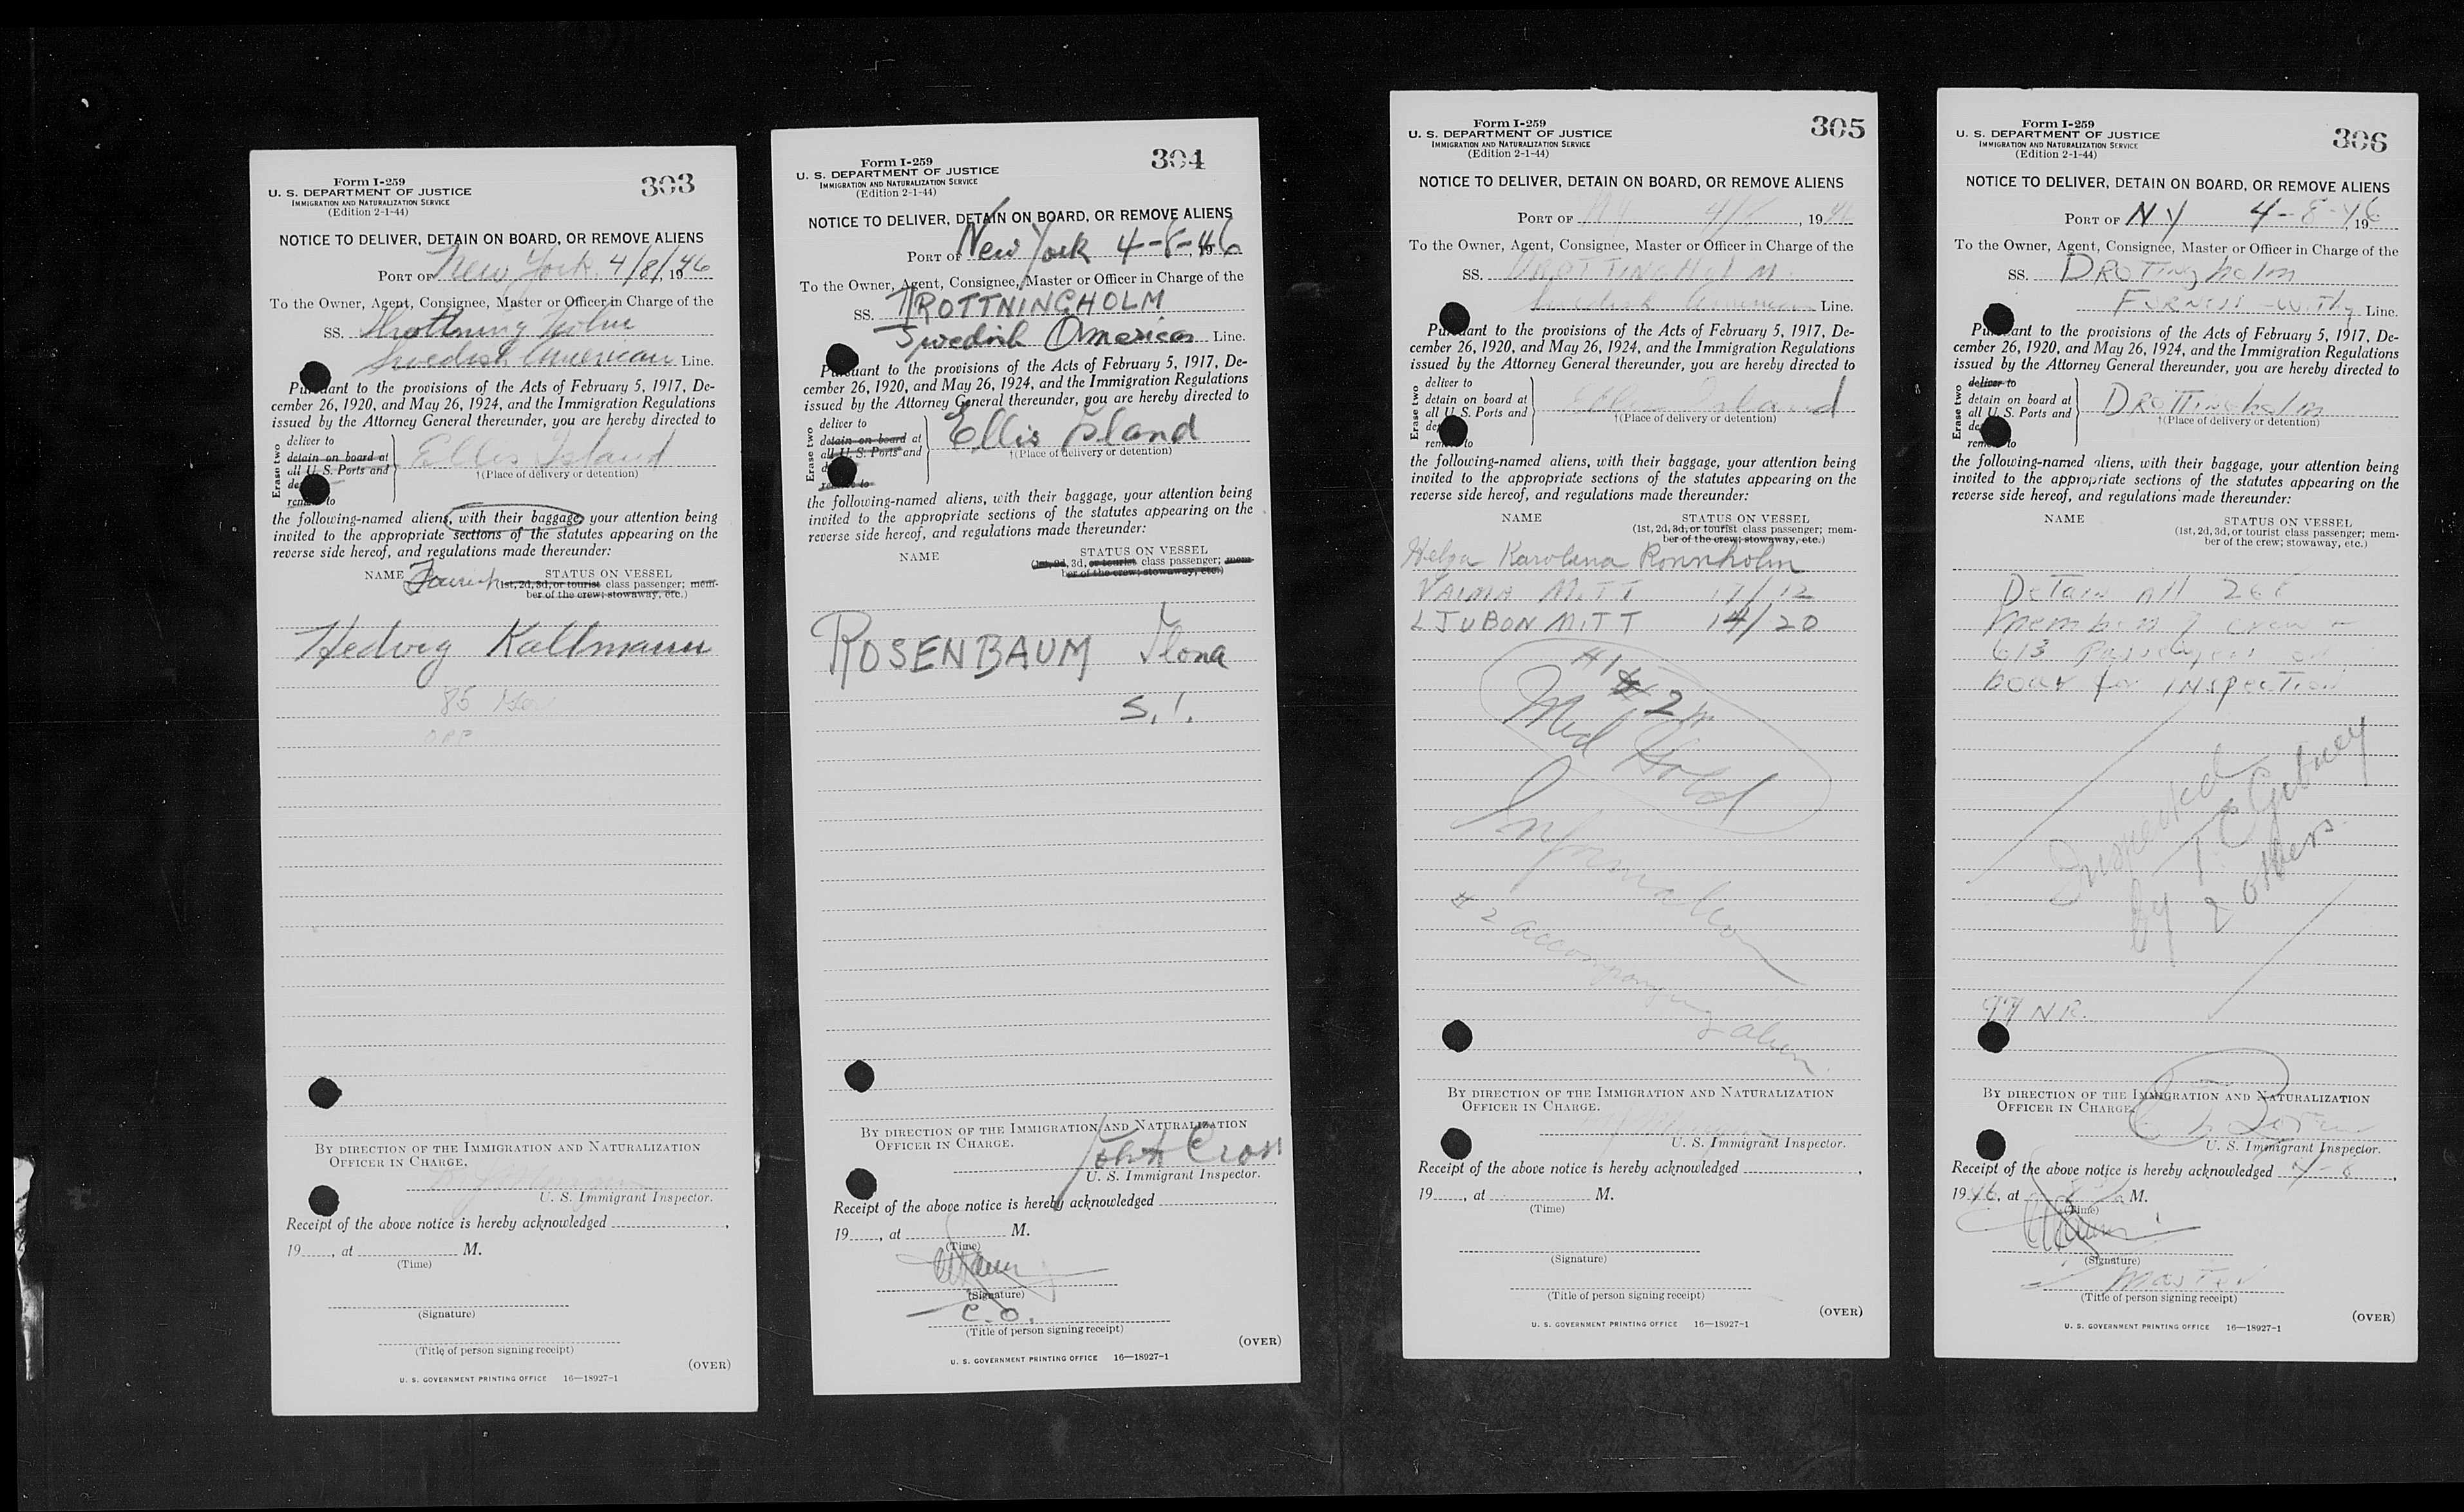 Form I-259
303
U. S. DEPARTMENT OF JUSTICE
IMMIGRATION AND NATURALIZATION SERVICE
(Edition 2-1-44)
NOTICE TO DELIVER, DETAIN ON BOARD, OR REMOVE ALIENS
PORT OF New York 4/8/, 1946
To the Owner, Agent, Consignee, Master or Officer in Charge of the
SS. Drottningholm
Swedish American Line.
Pursuant to the provisions of the Acts of February 5, 1917, De-
cember 26, 1920, and May 26, 1924, and the Immigration Regulations
issued by the Attorney General thereunder, you are hereby directed to
Erase two
deliver to
detain on board at
all U. S. Ports and
de
remove to
Ellis Island
†(Place of delivery or detention)
the following-named aliens, with their baggage, your attention being
invited to the appropriate sections of the statutes appearing on the
reverse side hereof, and regulations made thereunder:
NAME Tourist STATUS ON VESSEL
(1st, 2d, 3d, or tourist class passenger; mem-
ber of the crew; stowaway, etc.)
Hedwig Kallmann
85
BY DIRECTION OF THE IMMIGRATION AND NATURALIZATION
OFFICER IN CHARGE.
U. S. Immigrant Inspector.
Receipt of the above notice is hereby acknowledged ,
19 , at M.
(Time)
(Signature)
(Title of person signing receipt)
(OVER)
U. S. GOVERNMENT PRINTING OFFICE 16—18927-1
Form I-259
304
U. S. DEPARTMENT OF JUSTICE
IMMIGRATION AND NATURALIZATION SERVICE
(Edition 2-1-44)
NOTICE TO DELIVER, DETAIN ON BOARD, OR REMOVE ALIENS
PORT OF New York 4-8-, 1946
To the Owner, Agent, Consignee, Master or Officer in Charge of the
SS. DROTTNINGHOLM
Swedish American Line.
Pursuant to the provisions of the Acts of February 5, 1917, De-
cember 26, 1920, and May 26, 1924, and the Immigration Regulations
issued by the Attorney General thereunder, you are hereby directed to
Erase two
deliver to
detain on board at
all U. S. Ports and
d
remove to
Ellis Island
†(Place of delivery or detention)
the following-named aliens, with their baggage, your attention being
invited to the appropriate sections of the statutes appearing on the
reverse side hereof, and regulations made thereunder:
NAME STATUS ON VESSEL
(1st, 2d, 3d, or tourist class passenger; mem-
ber of the crew; stowaway, etc.)
ROSENBAUM Ilona
S.I.
BY DIRECTION OF THE IMMIGRATION AND NATURALIZATION
OFFICER IN CHARGE.
John Cross
U. S. Immigrant Inspector.
Receipt of the above notice is hereby acknowledged .
19 , at M.
(Time)
(Signature)
C.O.
(Title of person signing receipt)
(OVER)
U. S. GOVERNMENT PRINTING OFFICE 16—18927-1
Form I-259
305
U. S. DEPARTMENT OF JUSTICE
IMMIGRATION AND NATURALIZATION SERVICE
(Edition 2-1-44)
NOTICE TO DELIVER, DETAIN ON BOARD, OR REMOVE ALIENS
PORT OF NY 4/8 , 1946
To the Owner, Agent, Consignee, Master or Officer in Charge of the
SS. DROTTINGHOLM
Swedish American Line.
Pursuant to the provisions of the Acts of February 5, 1917, De-
cember 26, 1920, and May 26, 1924, and the Immigration Regulations
issued by the Attorney General thereunder, you are hereby directed to
Erase two
deliver to
detain on board at
all U. S. Ports and
de
remove to
Ellis Island
†(Place of delivery or detention)
the following-named aliens, with their baggage, your attention being
invited to the appropriate sections of the statutes appearing on the
reverse side hereof, and regulations made thereunder:
NAME STATUS ON VESSEL
(1st, 2d, 3d, or tourist class passenger; mem-
ber of the crew; stowaway, etc.)
Helga Karolina Ronnholm
VAIMA MITT 11/12
LJUBON MITT 14/20
Med Hold
Information
# 2 accompanying alien
BY DIRECTION OF THE IMMIGRATION AND NATURALIZATION
OFFICER IN CHARGE.
U. S. Immigrant Inspector.
Receipt of the above notice is hereby acknowledged ,
19 , at M.
(Time)
(Signature)
(Title of person signing receipt)
(OVER)
U. S. GOVERNMENT PRINTING OFFICE 16—18927-1
Form I-259
306
U. S. DEPARTMENT OF JUSTICE
IMMIGRATION AND NATURALIZATION SERVICE
(Edition 2-1-44)
NOTICE TO DELIVER, DETAIN ON BOARD, OR REMOVE ALIENS
PORT OF NY 4-8-46, 19
To the Owner, Agent, Consignee, Master or Officer in Charge of the
SS. DROTINGholm
FURNESS-Withy Line.
Pursuant to the provisions of the Acts of February 5, 1917, De-
cember 26, 1920, and May 26, 1924, and the Immigration Regulations
issued by the Attorney General thereunder, you are hereby directed to
Erase two
deliver to
detain on board at
all U. S. Ports and
de
remove to
DROTTINGholm
†(Place of delivery or detention)
the following-named aliens, with their baggage, your attention being
invited to the appropriate sections of the statutes appearing on the
reverse side hereof, and regulations made thereunder:
NAME STATUS ON VESSEL
(1st, 2d, 3d, or tourist class passenger; mem-
ber of the crew; stowaway, etc.)
Detain all
members of crew
613 Passengers on
boar for INspection
Inspected
by
2 others
NR.
BY DIRECTION OF THE IMMIGRATION AND NATURALIZATION
OFFICER IN CHARGE.
U. S. Immigrant Inspector.
Receipt of the above notice is hereby acknowledged 4-8,
1946, at M.
(Time)
(Signature)
Master
(Title of person signing receipt)
(OVER)
U. S. GOVERNMENT PRINTING OFFICE 16—18927-1